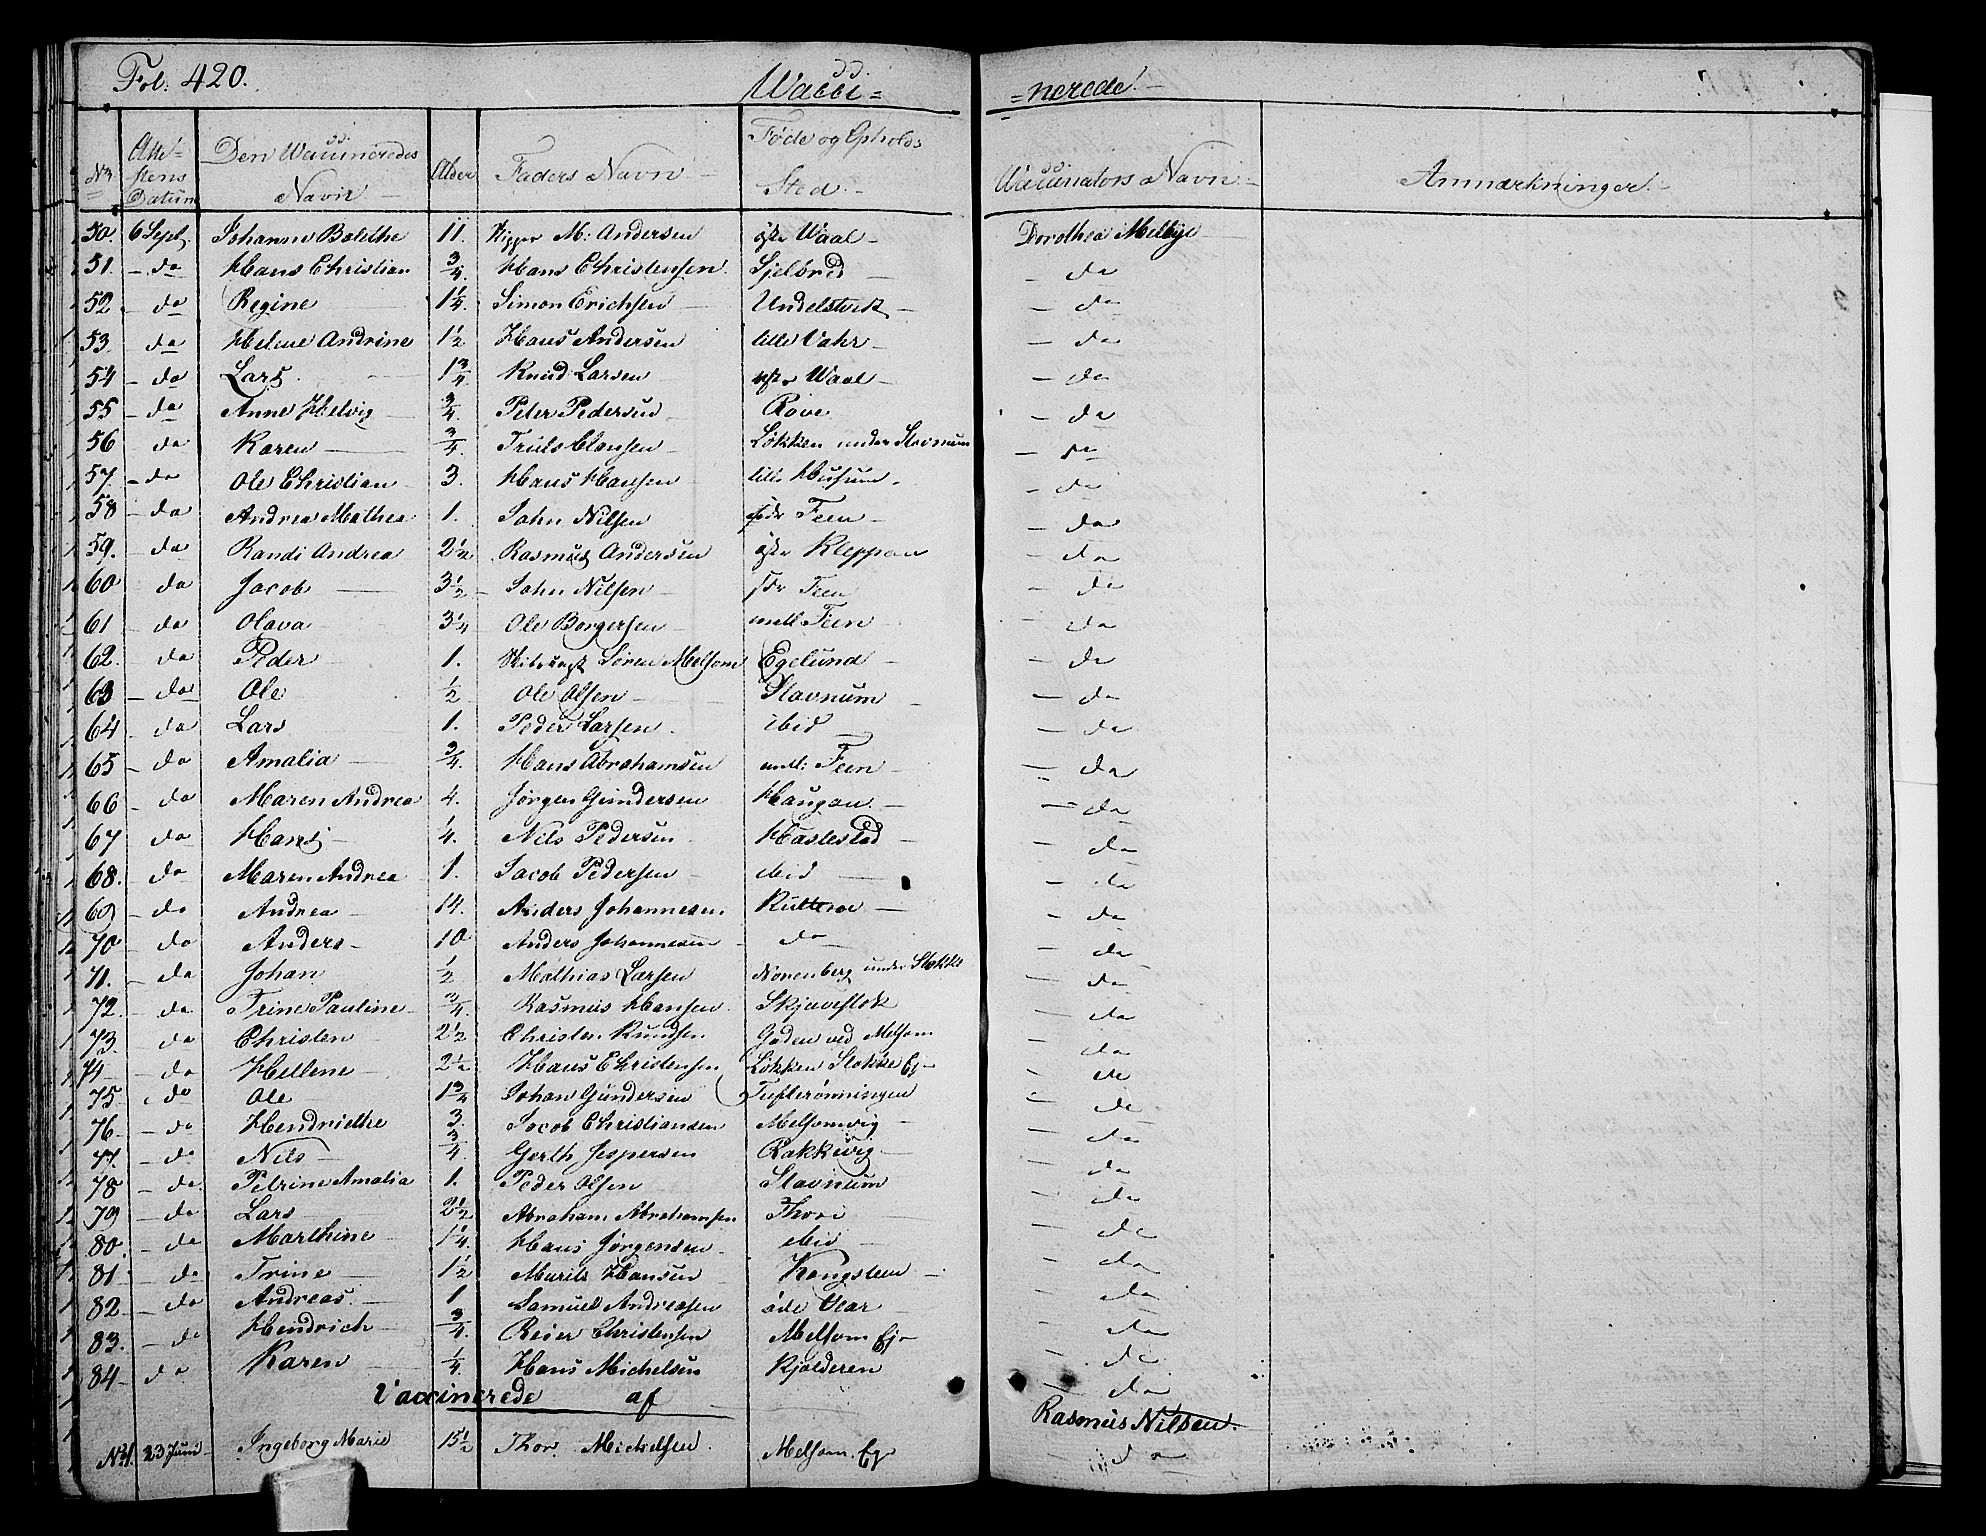 Fol: 420.
Wacci=
=nerede.
No
Atte-
stens
Datum
Den Waccineredes
Navn
Alder
Faders Navn
Føde og Opholds
Sted.
Waccinators Navn
Anmærkninger.
50. 6 Sept. Johanne Bolethe 11. Skipper M. Andersen øste Waal Dorothea Melbye
51. - do Hans Christian 3/4 Hans Christensen Sjelöred - do
52. - do Regine 1 1/4 Simon Erichsen Undelstvedt - do
53. - do Helene Andrine 1 1/2 Hans Andersen lille Vahr - do
54 - do Lars 1 3/4 Knud Larsen Waal - do
55 - do Anne Helvig 3/4 Peter Pedersen Röve - do
56 do Karen 3/4 Truls Clausen Løkken under Slavnum - do
57. - do Ole Christian 3. Hans Hansen lille Husum - do
58 - do Andrea Mathea 1. John Nilsen Feen - do
59. - do Randi Andrea 2 1/2 Rasmus Andersen øste Kleppan - do
60 do Jacob 3 1/2 John Nilsen Feen - do
61 - do Olava 3 1/4 Ole Borgersen mell Feen - do
62. - do Peder 1. Søren Melsom Egelund - do
63 - do Ole 1/2 Ole Olsen Slavnum - do
64 do Lars 1. Peder Larsen ibid - do
65 - do Amalia 3/4 Hans Abrahamsen mell: Feen - do
66 - do Maren Andrea 4. Jørgen Gundersen Haugan - do
67 do Hans 1/4 Nils Pedersen Haslestad - do
68. - do Maren Andrea 1. Jacob Pedersen ibid - do
69 - do Andrea 14. Anders Johannesen - do
70 - do Anders 10 Anders Johannesen do - do
71. - do Johan 1/2 Mathias Larsen Nonenberg under Stokke - do
72. - do Trine Pauline 3/4 Rasmus Hansen Skjæveslok - do
73 - do Christen 2 1/2 Christen Knudsen Gaden ved Melsom - do
74 - do Hellene 2 1/2 Hans Christensen Løkken Stokke Ej - do
75 - do Ole 1 3/4 Johan Gundersen Tufterønningen - do
76 - do Hendriethe 3. Jacob Christiansen Melsomvig - do
77. - do Nils 3/4 Gerth Jespersen Rakkevig - do
78 - do Petrine Amalia 1. Peder Olsen Slavnum - do
79 - do Lars 2 1/2 Abraham Abrahamsen - do
80. - do Marthine 1 1/4 Hans Jørgensen ibid - do
81 - do Trine 1 1/2 Murits Hansen Kongsteen - do
82. - do Andreas. 1 Samuel Andreasen øde Vear - do
83. - do Hendrich 3/4. Reier Christensen Melsom Ej - do
84 - do Karen 1/4 Hans Michelsen Kjolderen - do
Vaccinerede af Rasmus Nilsen.
No 1. 23 Juni Ingeborg Marie 15 1/2 Thor Michelsen. Melsom Ej do